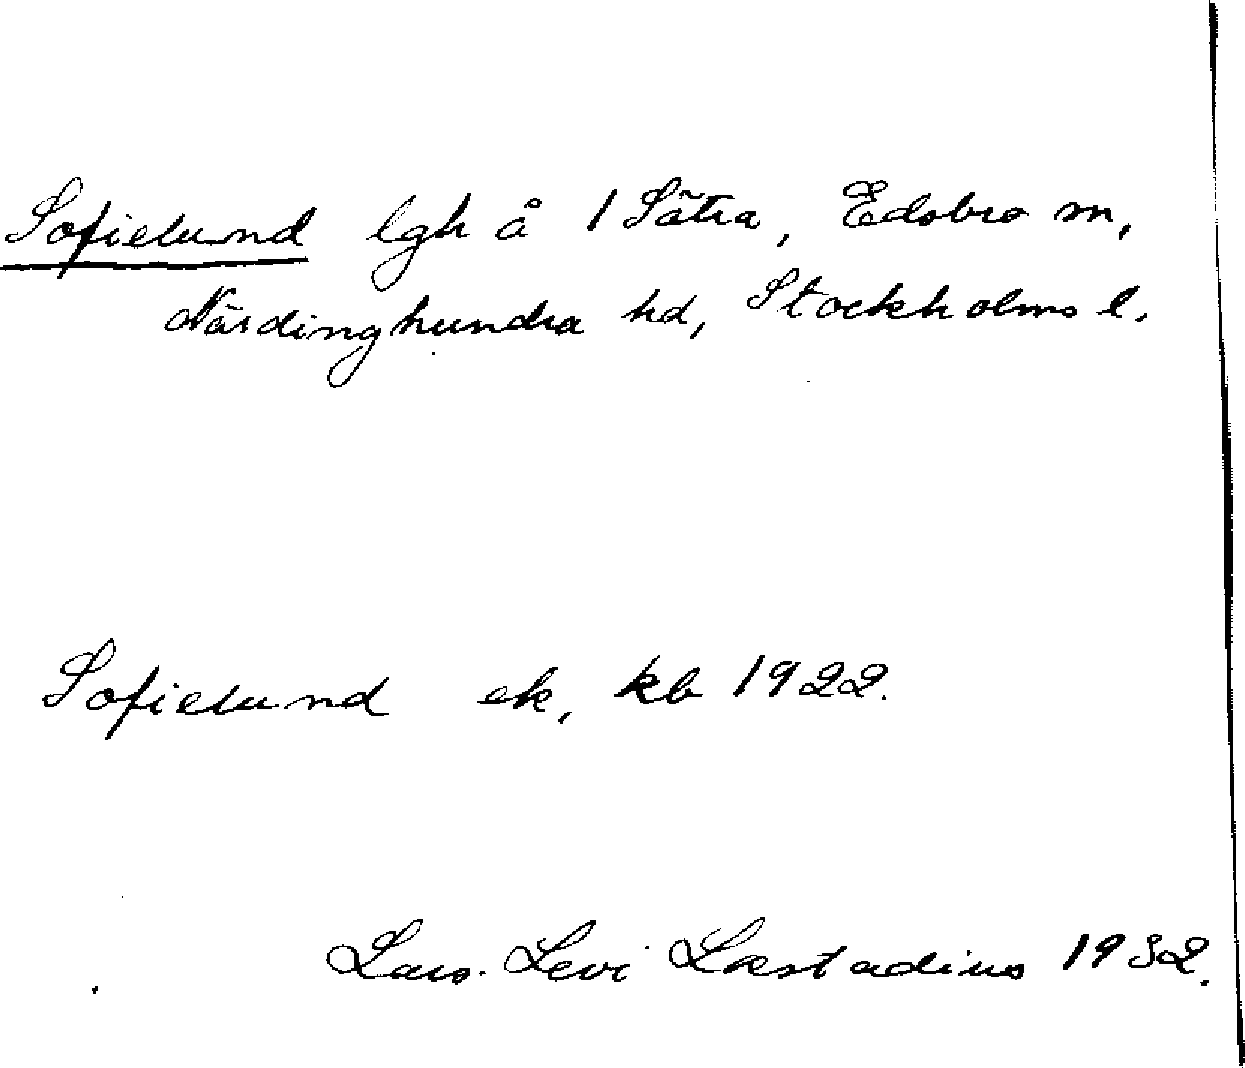 Sofielund lgh å 1 Sätra, Edsbro sn,
Närdinghundra hd, Stockholms l.
Sofielund ek, kb 1922.
Lars. Levi Læstadius 1932.